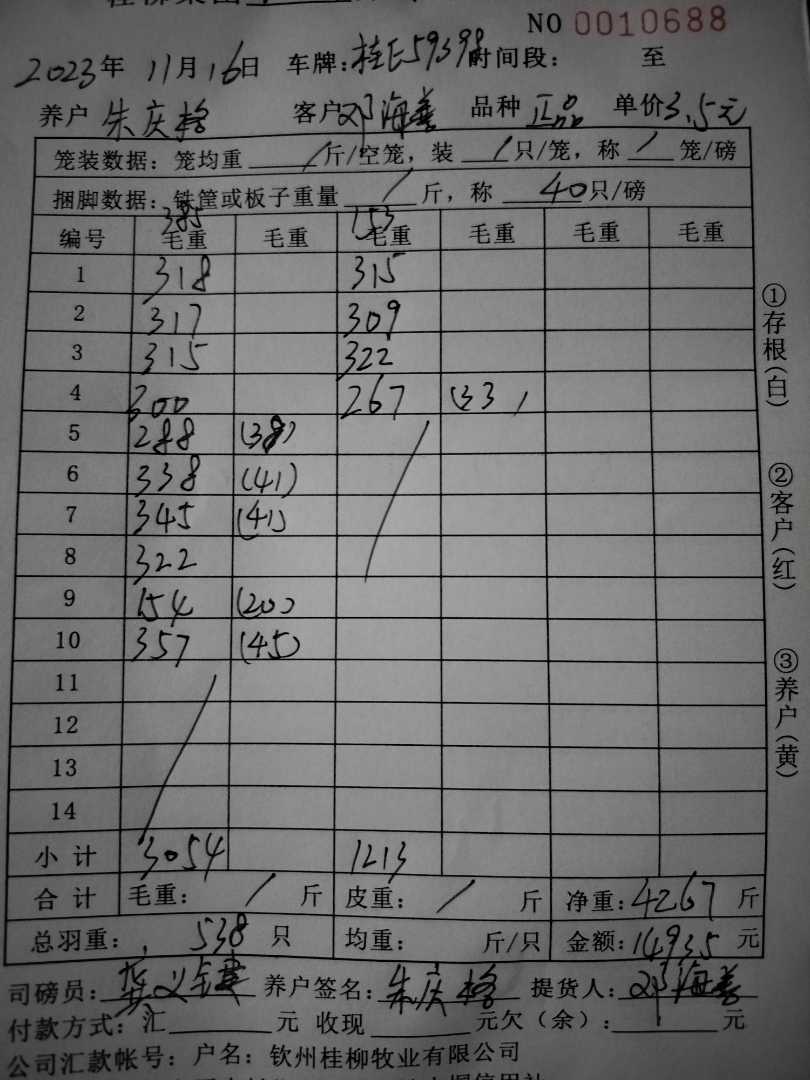 NO 0010688
2023年 11月16日 车牌:桂E59398 时间段: 至
养户 朱庆格 客户 邓海善 品种 正品 单价 3.5元
笼装数据: 笼均重 / 斤/空笼, 装 / 只/笼, 称 / 笼/磅
捆脚数据: 铁筐或板子重量 / 斤, 称 40 只/磅
385 153
编号 毛重 毛重 毛重 毛重 毛重 毛重
1 318 315
2 317 309
3 315 322
4 300 267 (33)
5 288 (38)
6 338 (41)
7 345 (41)
8 322
9 154 (20)
10 357 (45)
11
12
13
14
小计 3054 1213
合计 毛重: / 斤 皮重: / 斤 净重: 4267 斤
总羽重: 538 只 均重: 斤/只 金额: 14935 元
司磅员: 养户签名: 朱庆格 提货人: 邓海善
付款方式: 汇 元 收现 元欠(余): 元
公司汇款帐号: 户名: 钦州桂柳牧业有限公司
①存根(白)
②客户(红)
③养户(黄)